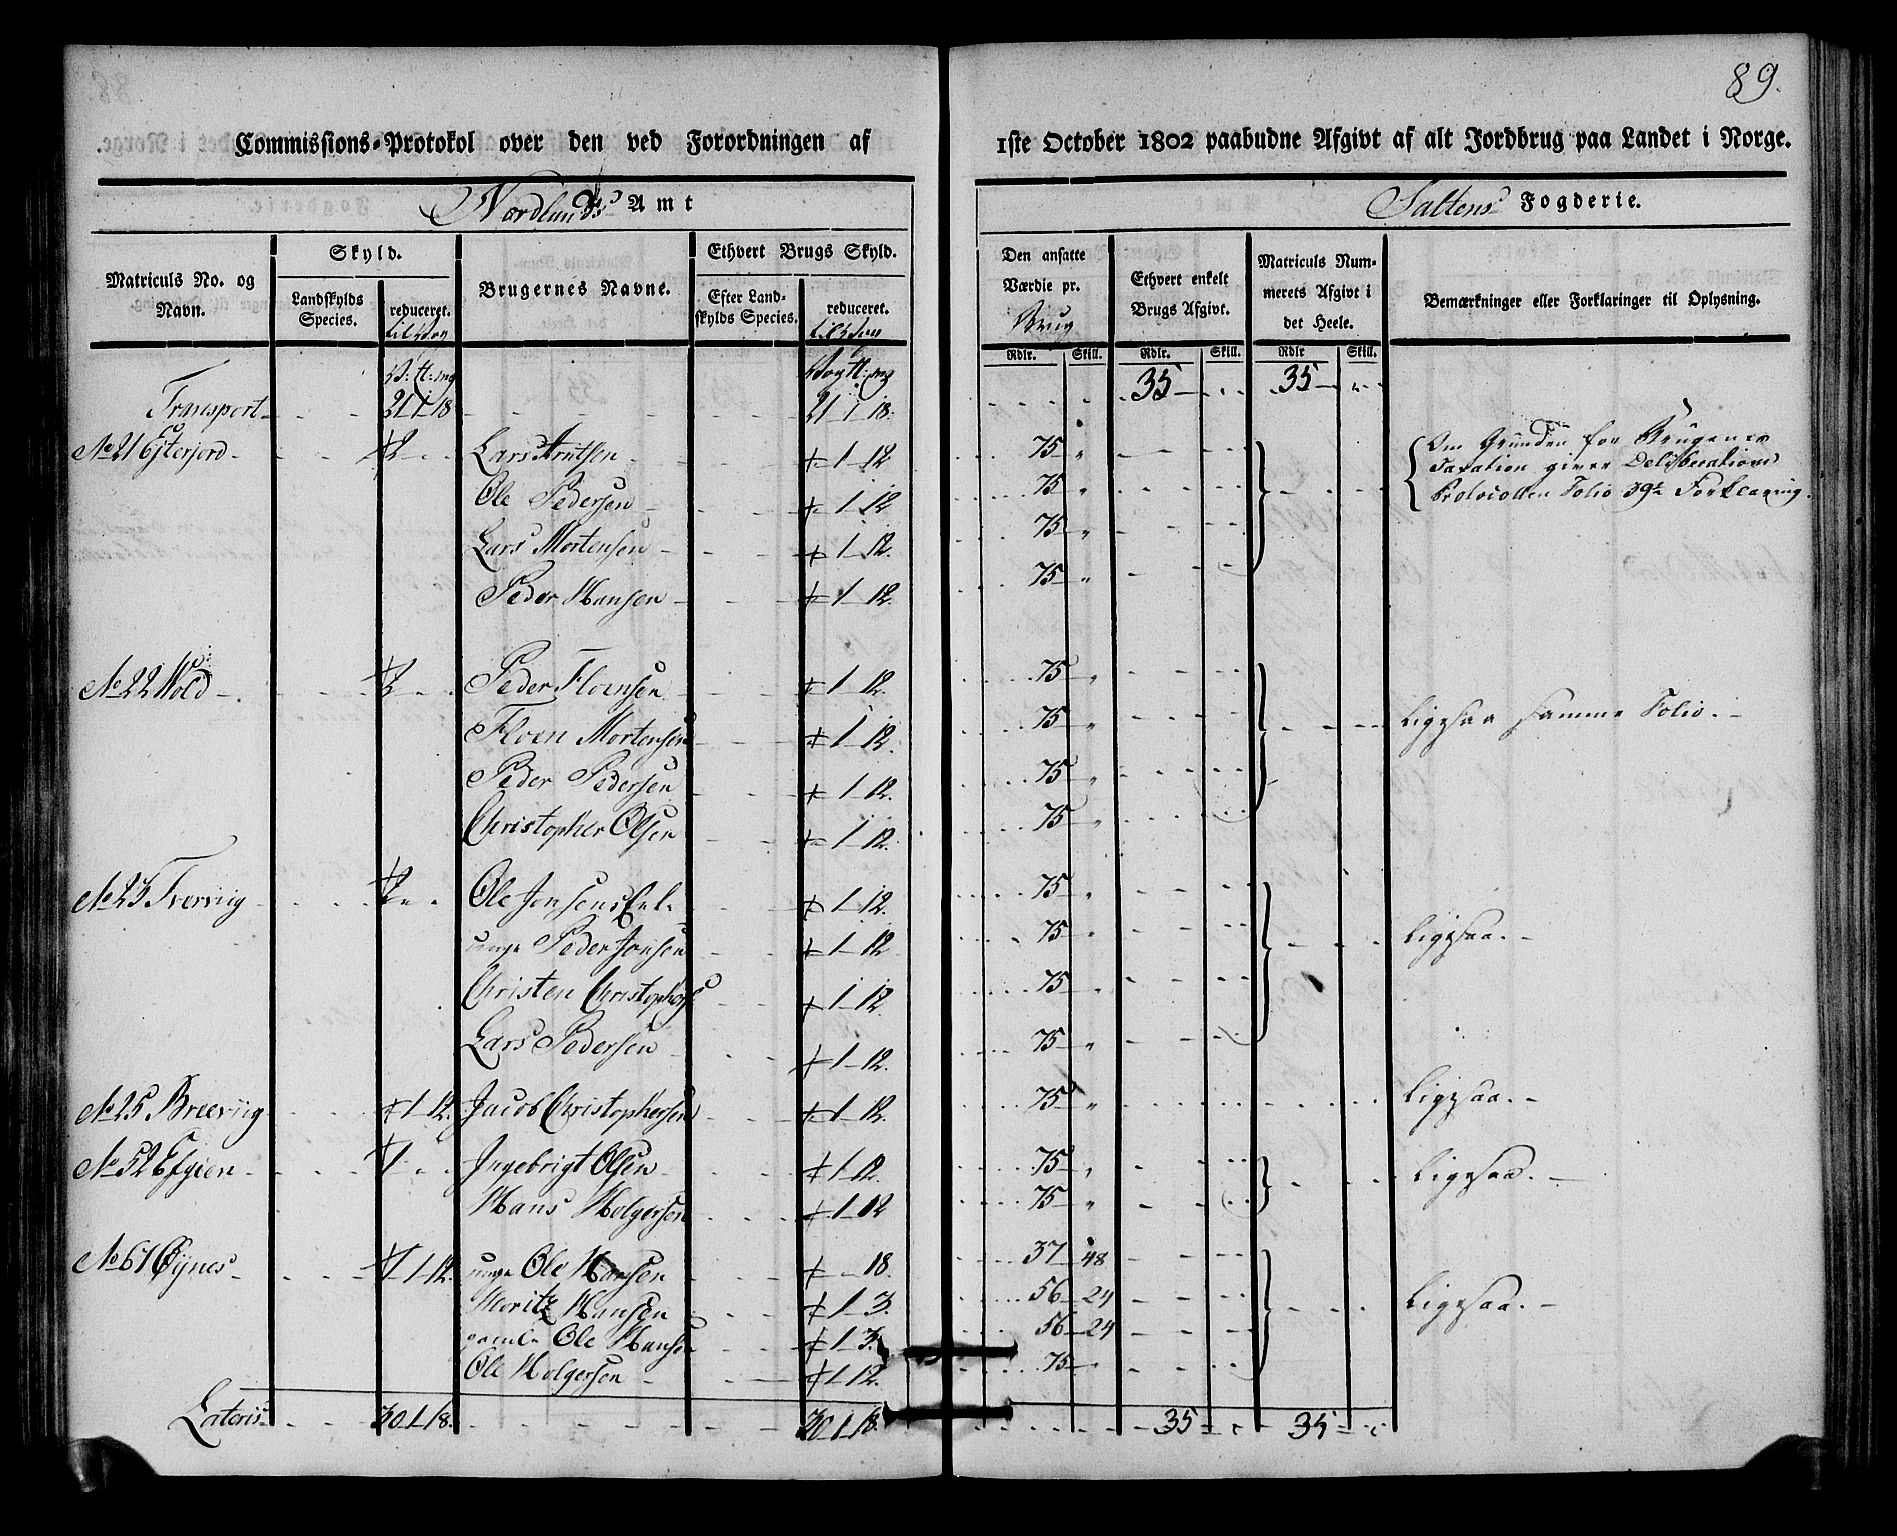 89.
Commissions-Protokol over den ved Forordningen af 1ste October 1802 paabudne Afgivt af alt Jordbrug paa Landet i Norge.
Nordlands Amt
Saltens Fogderie.
Matriculs No. og Navn.
Skyld.
Landskylds Species.
reduceret.
Brugernes Navne.
Ethvert Brugs Skyld.
Efter Landskylds Species.
reduceret.
Den ansatte Værdie pr. Brug
Ethvert enkelt Brugs Afgivt.
Matriculs Nummerets Afgivt i det Heele.
Bemærkninger eller Forklaringer til Oplysning.
Rdlr. Skill. Rdlr. Skill. Rdlr Skill.
35 - " 35 - "
Transport - 21 1 18 - 21 1 18.
No 21 Ejterjord - 2 - Lars Arntsen - 1 12 75 "
Om Grunden for Brugenes
Taxation giver Deliberations
Protocollen Folio 39te Forklaring.
Ole Pedersen - 1 12 75 "
Lars Mortensen - 1 12. 75 "
Peder Hansen - 1 12 75 "
No 22 Wold - 2 - Peder Floensen 1 12. 75 "
Floen Mortensen 1 12. 75 " Ligesaa samme Folio. -
Peder Pedersen 1 12. 75 "
Christopher Olsen 1 12. 75 "
No 23 Tverviig 2 - Ole Jonsens Enke 1 12. 75 "
unge Peder Jonsen 1 12 75 " Ligesaa. -
Christen Christophers 1 12 75 "
Lars Pedersen 1 12. 75 "
No 25 Breeviig 1 12. Jacob Christophersen 1 12. 75 " Ligesaa. -
No 52 Efgien - 1 - Ingebrigt Olsen - 1 12. 75 " Ligesaa. -
Hans Holgersen 1 12 75 "
No 61 Øynes - 1 1 12. unge Ole Hansen - 18. 37 48
Moritz Hansen 1 3. 56 24 Ligesaa. -
gamle Ole Hansen 1 3. 56 24
Ole Holgersen - 1 12. 75 "
Lateris - 30 1 18. - 30 1 18. 35 - " 35 - "